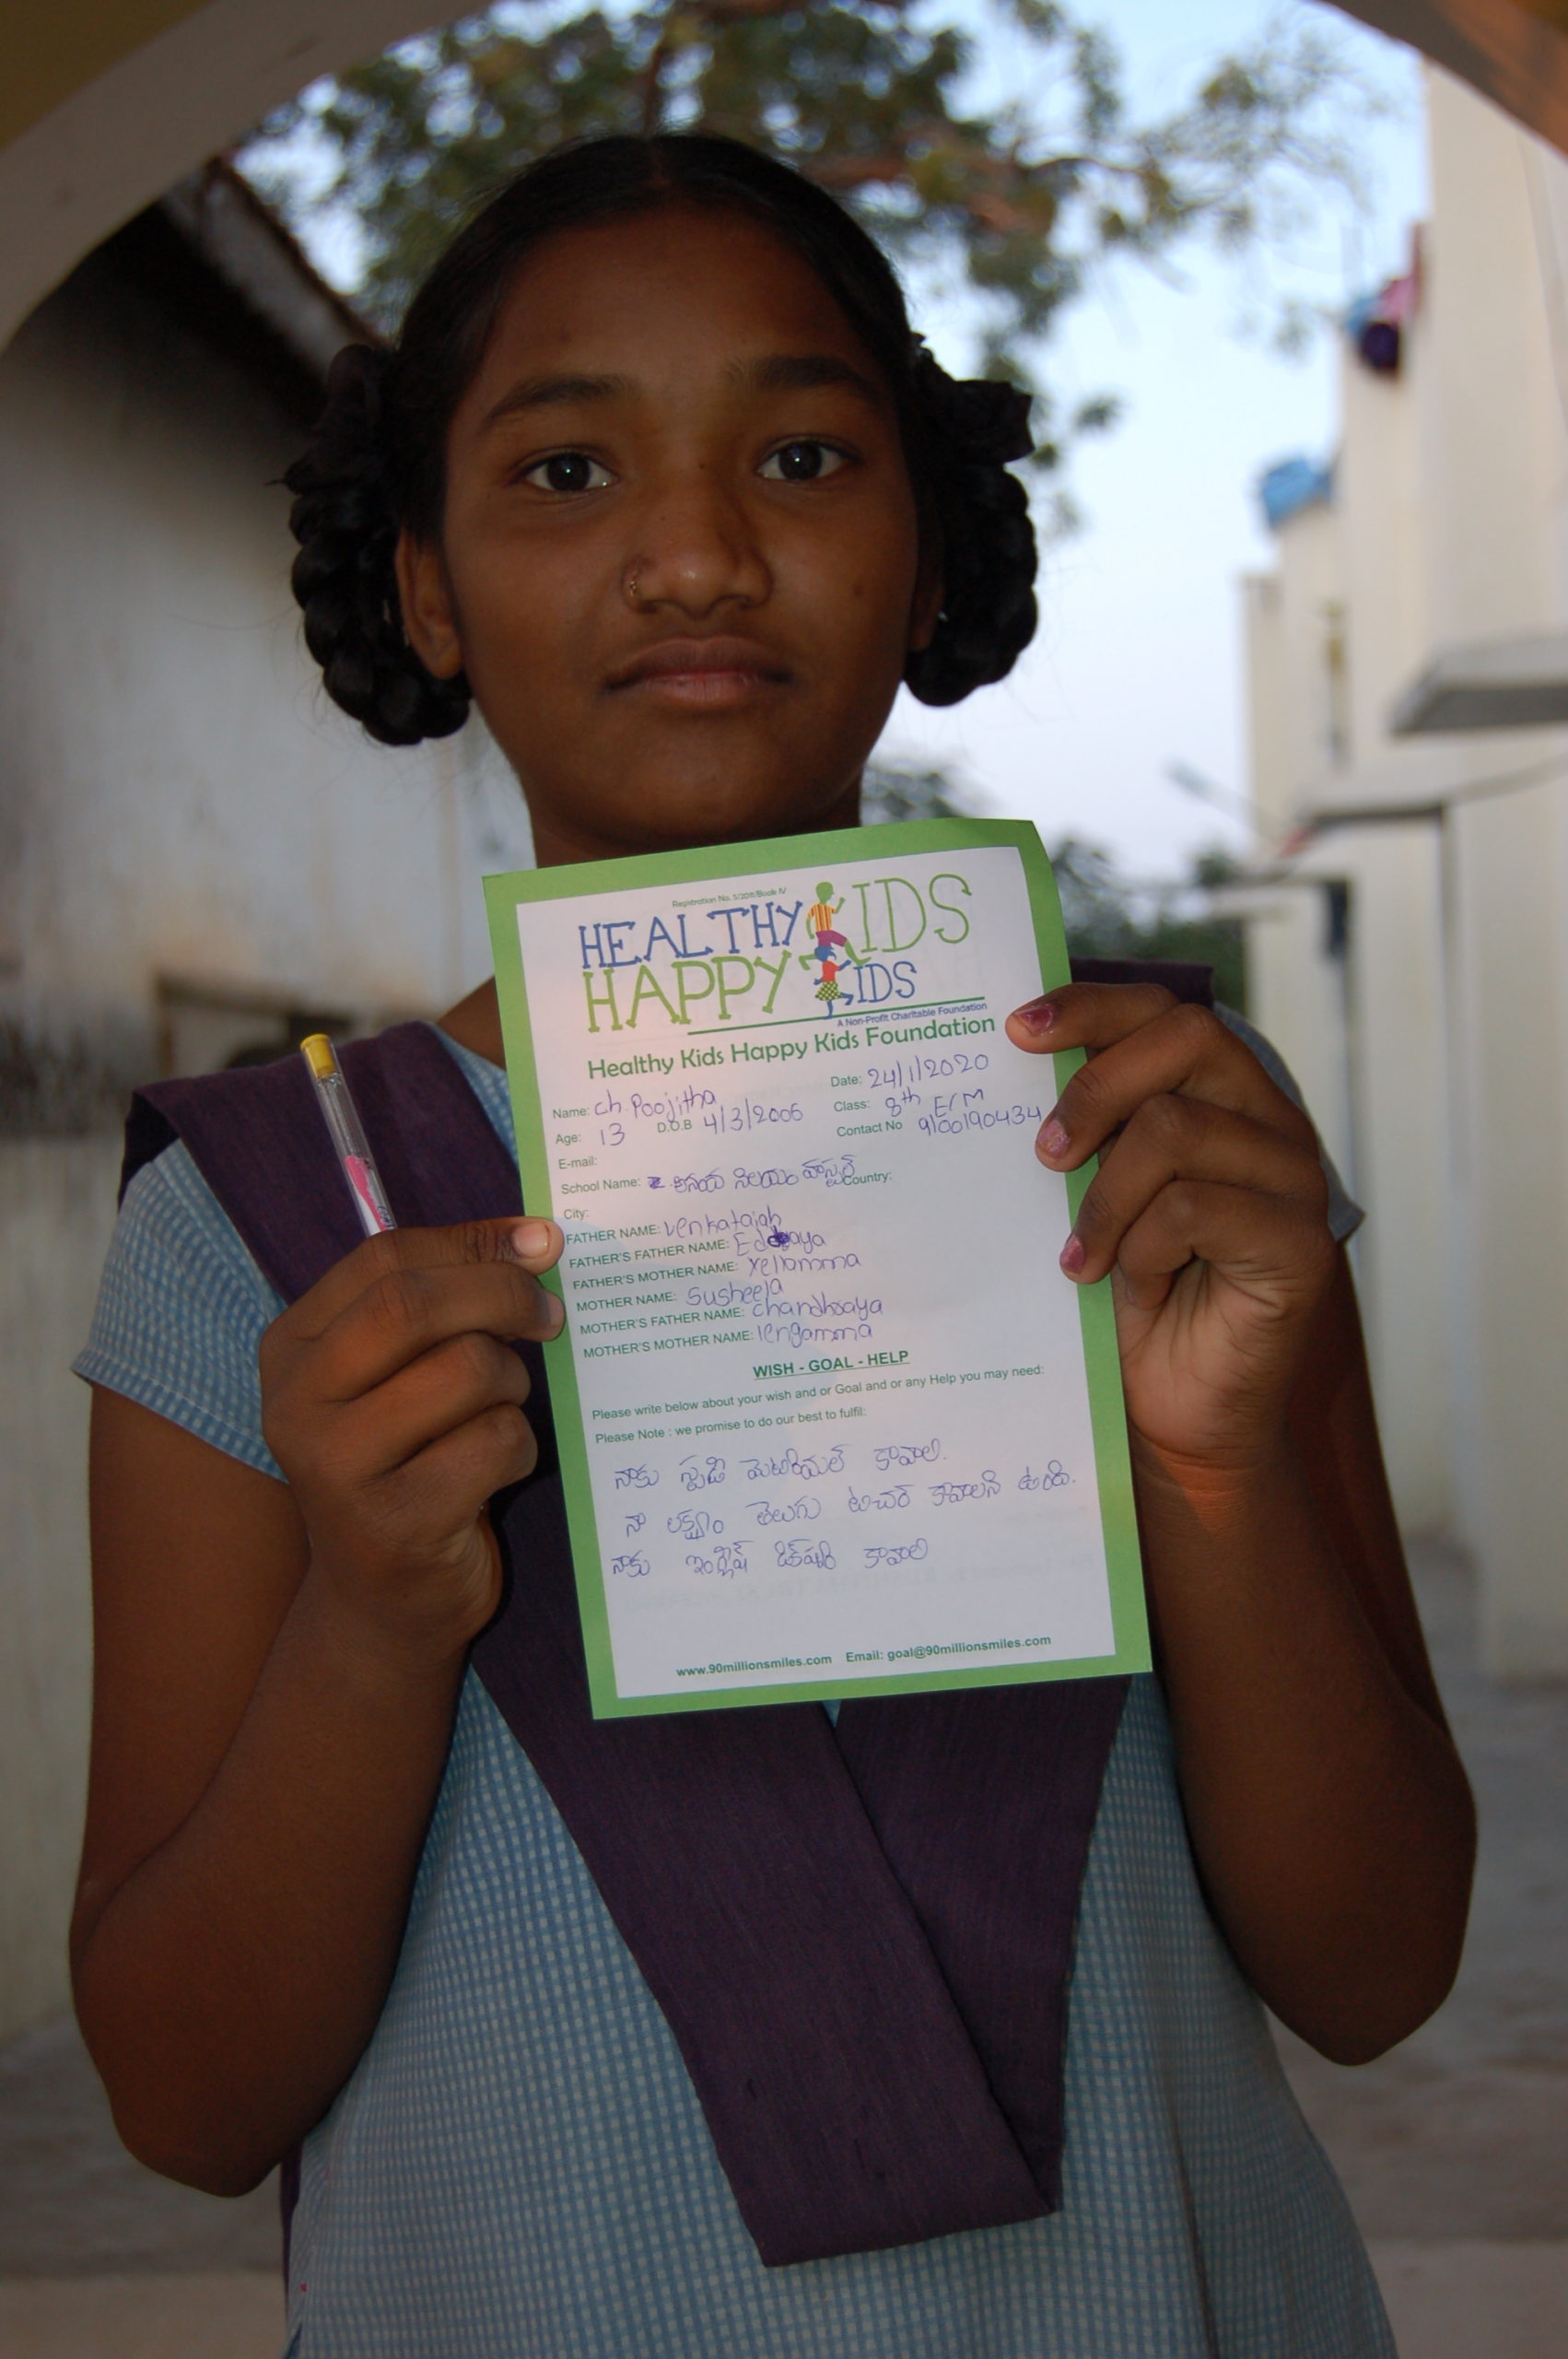 Registration No. 5/2011/Book IV
HEALTHY KIDS
HAPPY KIDS
A Non-Profit Charitable Foundation
Healthy Kids Happy Kids Foundation
Name: Ch. Poojitha Date: 24/1/2020
Age: 13 D.O.B 4/3/2006 Class: 8th E/M
Contact No 9100190434
E-mail:
School Name: ఆనంద నిలయం హాస్టల్ Country:
City:
FATHER NAME: Venkataiah
FATHER'S FATHER NAME:
FATHER'S MOTHER NAME: Yellamma
MOTHER NAME: Susheela
MOTHER'S FATHER NAME:
MOTHER'S MOTHER NAME: lengamma
WISH - GOAL - HELP
Please write below about your wish and or Goal and or any Help you may need:
Please Note : we promise to do our best to fulfil:
నాకు స్టడి మెటీరియల్ కావాలి.
నా లక్ష్యం తెలుగు టీచర్ కావాలని ఉంది.
నాకు ఇంగ్లీష్ డిక్ష్నరి కావాలి
www.90millionsmiles.com Email: goal@90millionsmiles.com